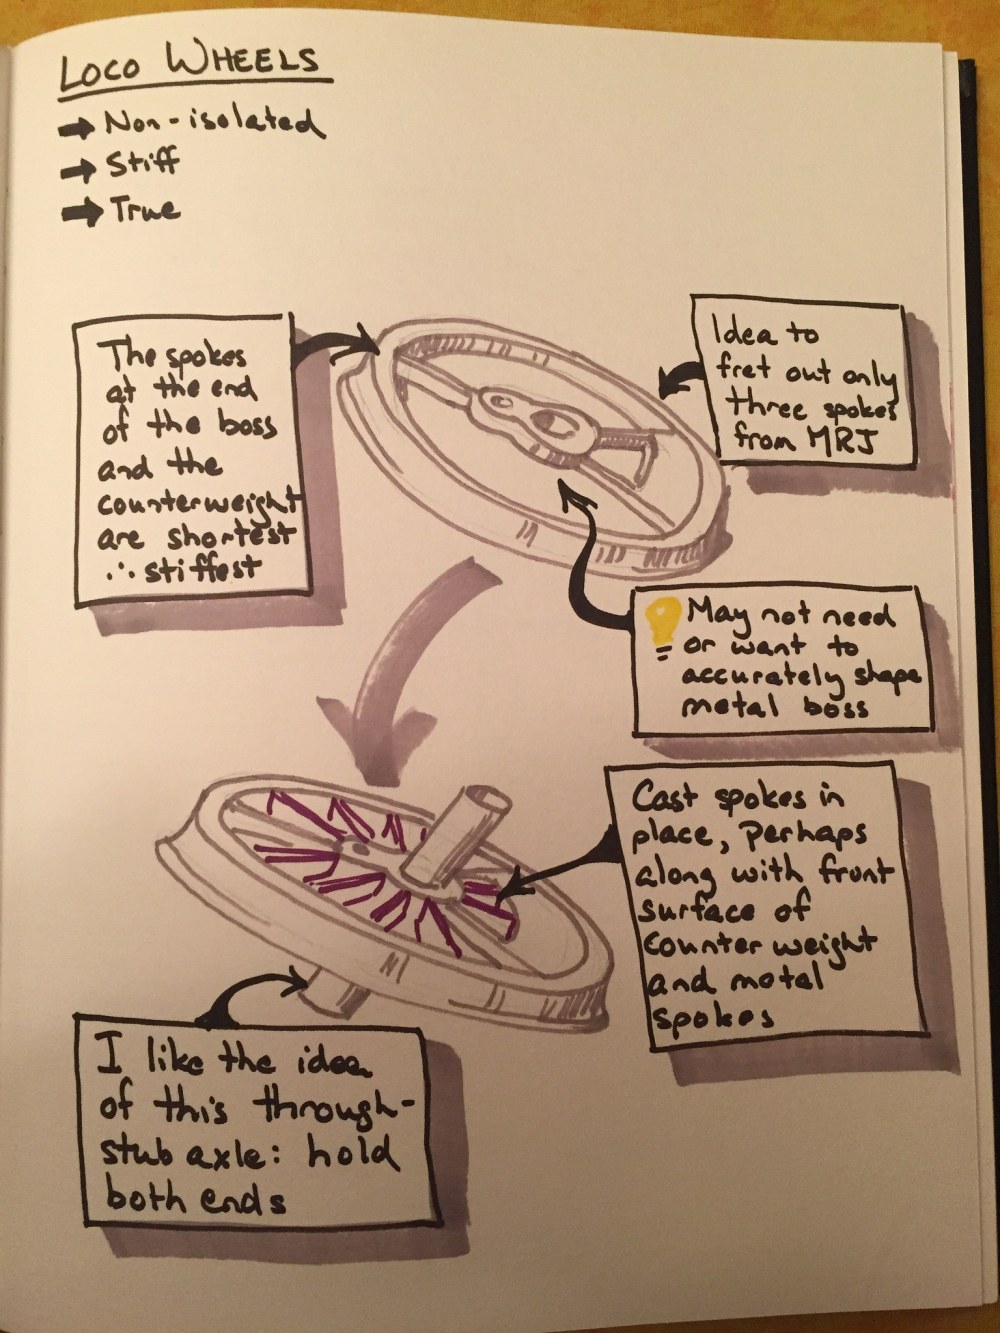 LOCO WHEELS
➡ Non-isolated
➡ Stiff
➡ True
The spokes
at the end
of the boss
and the
counterweight
are shortest
∴ stiffest
Idea to
fret out only
three spokes
from MRJ
May not need
or want to
accurately shape
metal boss
Cast spokes in
place, perhaps
along with front
surface of
counter weight
and metal
spokes
I like the idea
of this through-
stub axle: hold
both ends